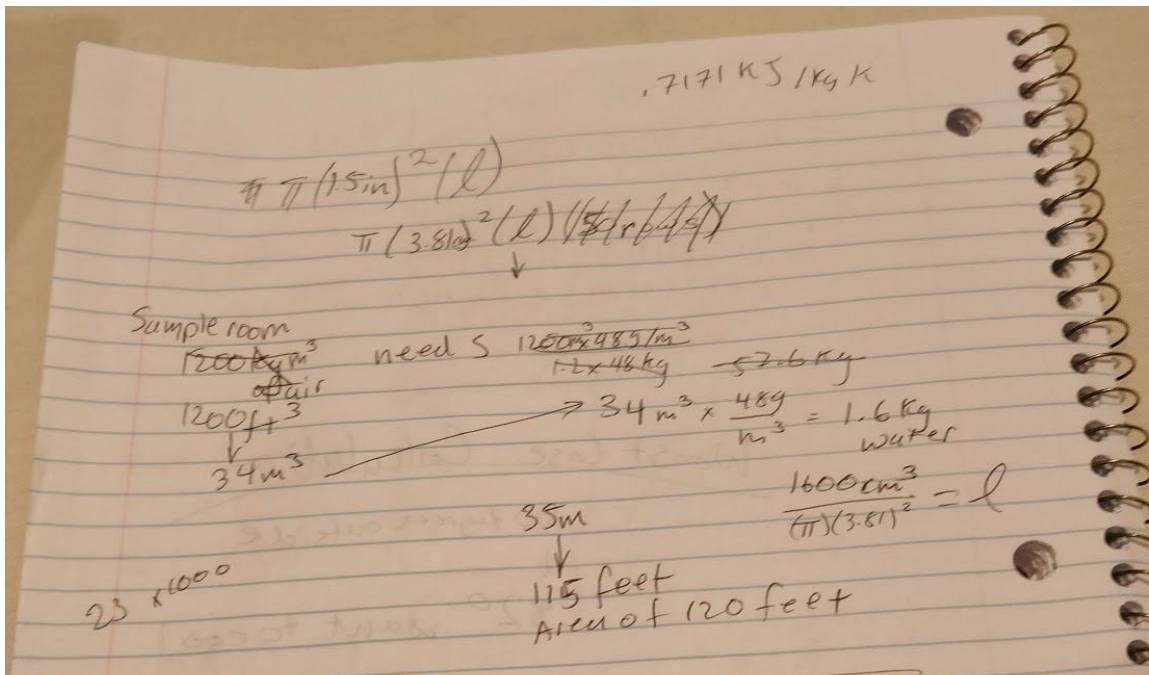 .7171 KJ/kg K
π(1.5in)²(l)
π(3.81cm)²(l)
↓
Sample room
1200kg m³
of air
1200ft³
↓
34m³
needs 1200m³x48g/m³
1.2x48kg 57.6kg
→ 34m³ x 48g/m³ = 1.6kg
water
1600cm³/(π)(3.81)² = l
35m
↓
115 feet
Area of 120 feet
23 x1000